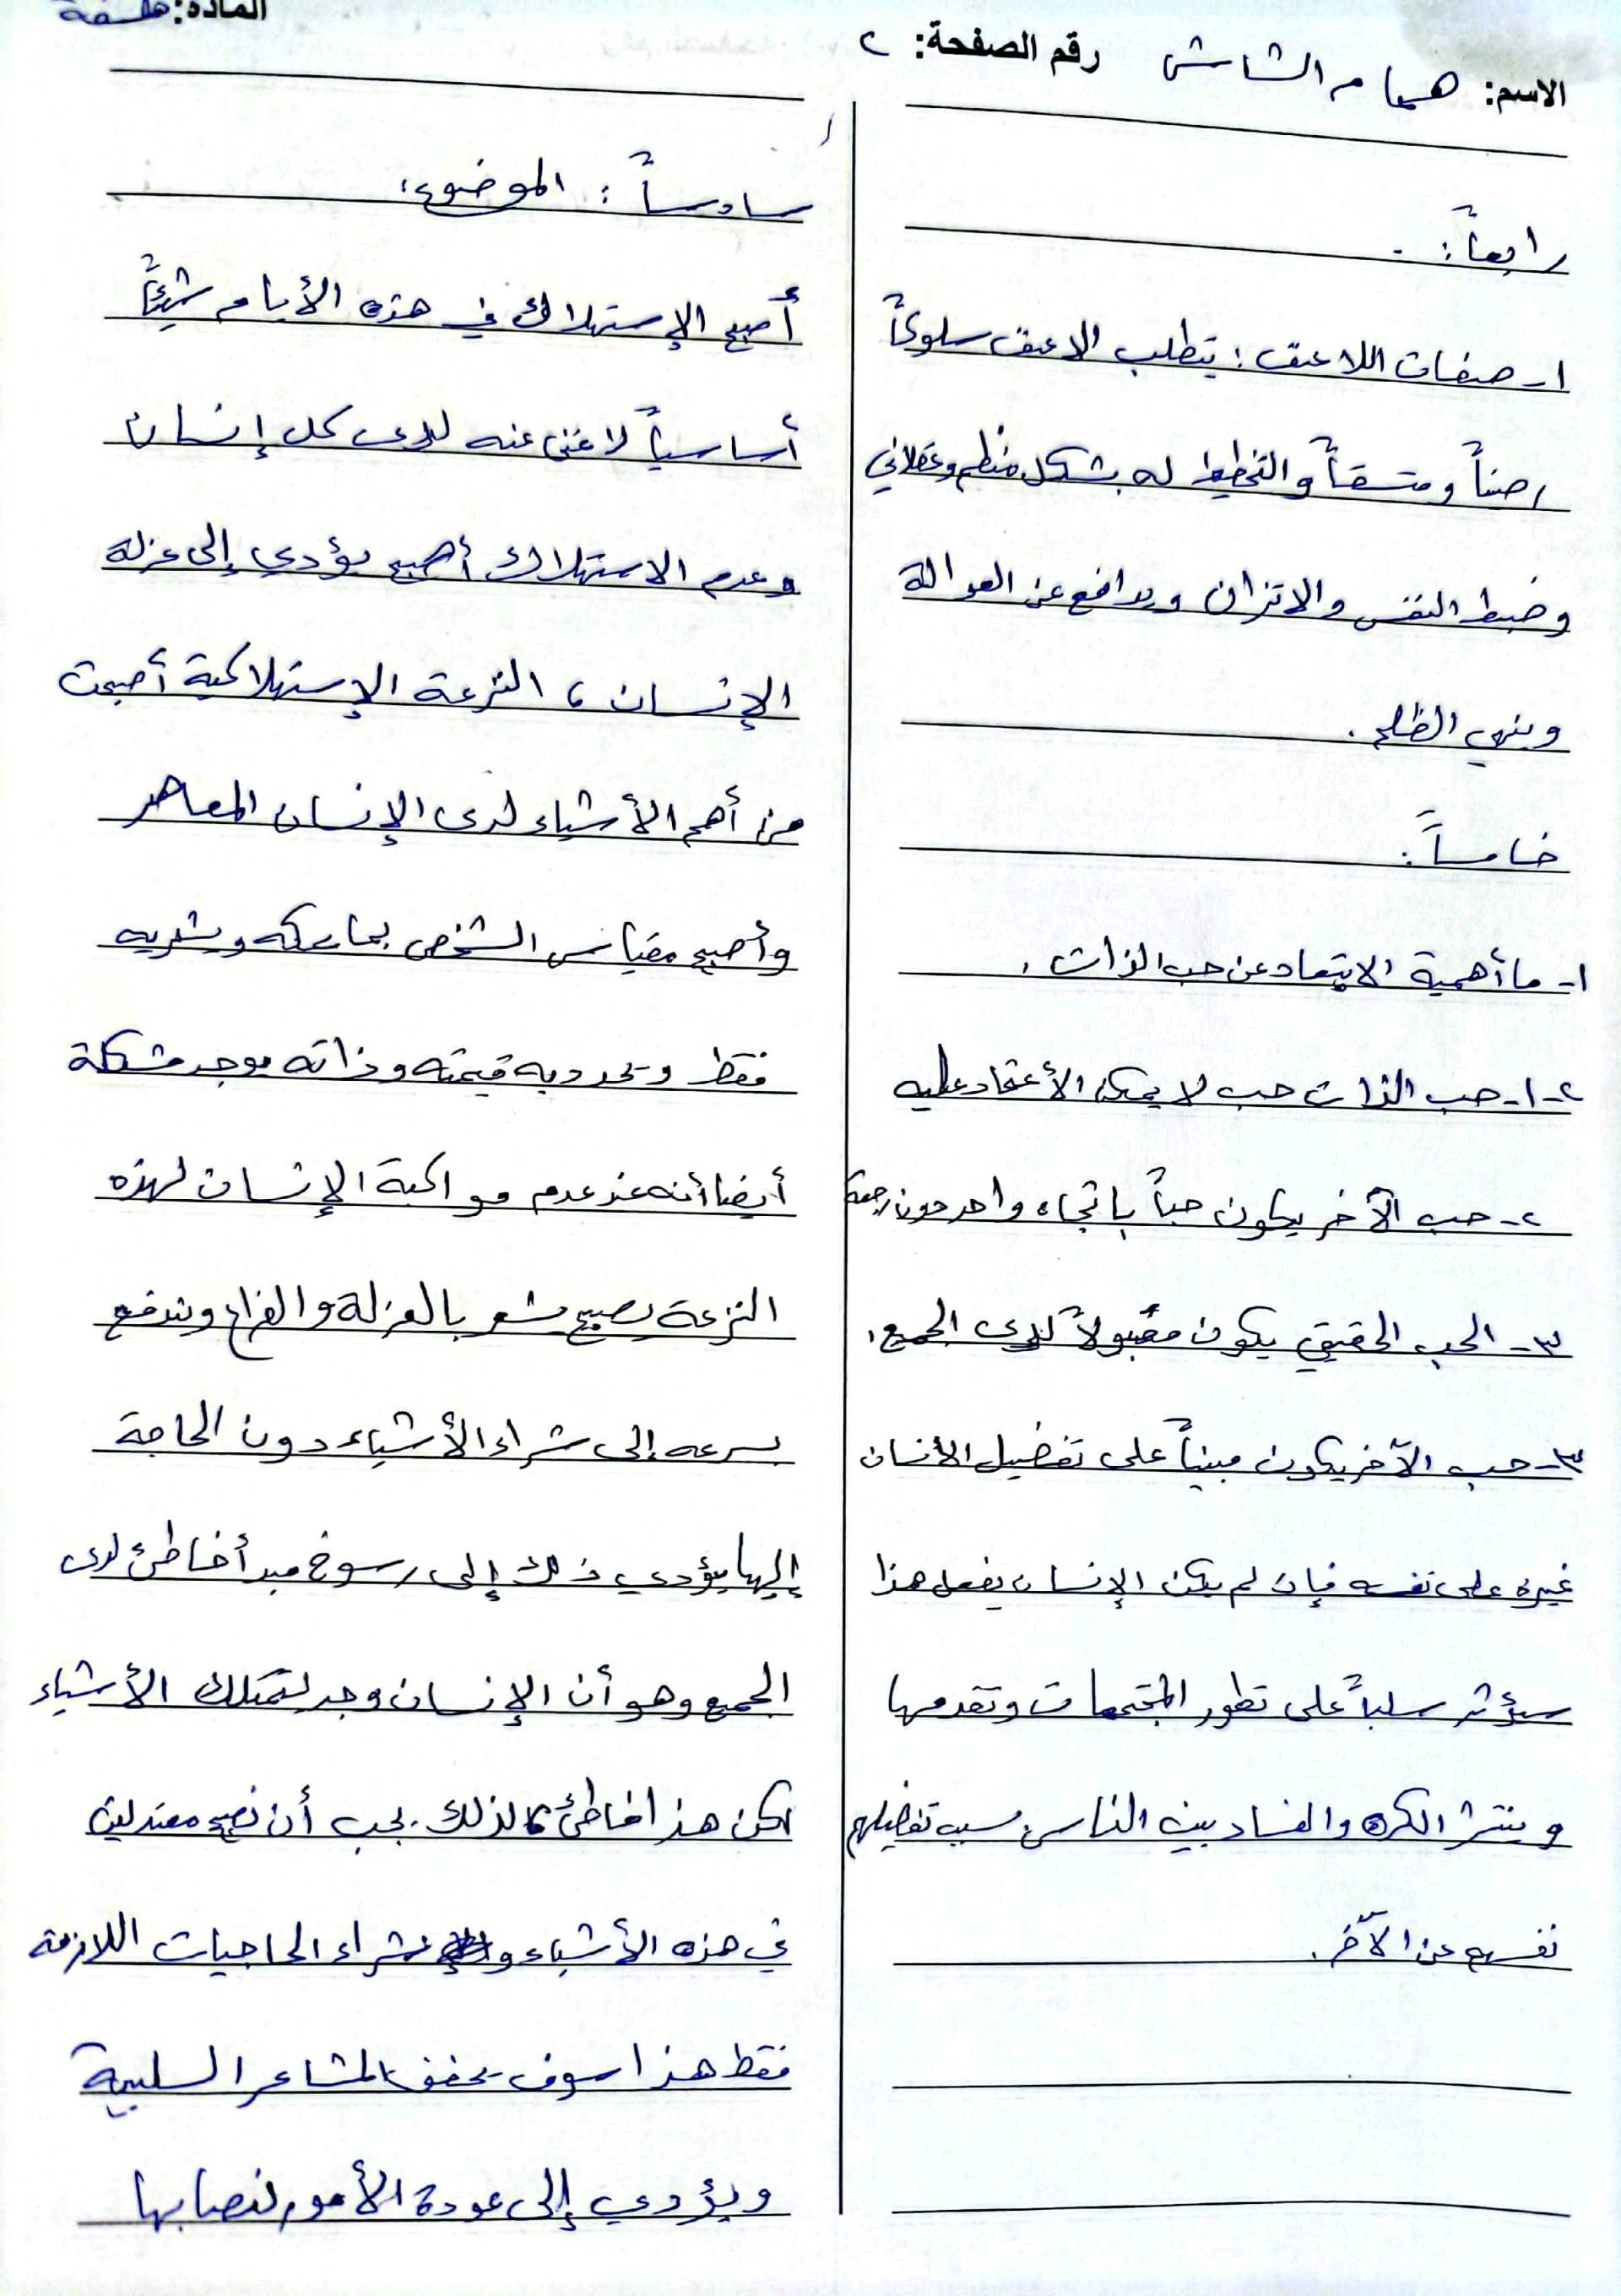 المادة: فلسفة
الاسم: همام الشاش رقم الصفحة: ٢
رابعاً:
١- صفات اللاعنف: يتطلب الاعنف سلوكاً
رصناً ومتسقاً والتخطيط له بشكل منظم وعقلاني
وضبط النفس والاتزان ويدافع عن العدالة
وينهي الظلم.
خامساً:
١- ما أهمية الابتعاد عن حب الذات.
٢-١- حب الذات حب لا يمكن الأعتماد عليه
٢- حب الآخر يكون حباً باتجاه واحد دون رجعة
٣- الحب الحقيقي يكون مقبولاً لدى الجميع.
٣- حب الآخر يكون مبنياً على تفضيل الأنسان
غيره على نفسه فإن لم يكن الإنسان يفعل هذا
سيؤثر سلباً على تطور المجتمعات وتقدمها
وينتشر الكره والفساد بين الناس بسبب تفضيلهم
نفسهم عن الآخر.
سادساً: الموضوع:
أصبح الإستهلاك في هذه الأيام شيئاً
أساسياً لا غنى عنه لدى كل إنسان
وعدم الاستهلاك أصبح يؤدي إلى عزلة
الإنسان، النزعة الإستهلاكية أصبحت
من أهم الأشياء لدى الإنسان المعاصر
وأصبح مقياس الشخص بما يملكه ويشتريه
فقط ويحدد به قيمته وذاته يوجد مشكلة
أيضا أنه عند عدم مواكبة الإنسان لهذه
النزعة يصبح يشعر بالعزلة والفراغ ويندفع
بسرعه إلى شراء الأشياء دون الحاجة
إليها يؤدي ذلك إلى رسوخ مبدأ خاطئ لدى
الجميع وهو أن الإنسان وجد ليتملك الأشياء
لكن هذا خاطئ لذلك يجب أن نصبح معتدلين
في هذه الأشياء و شراء الحاجيات اللازمة
فقط هذا سوف يخفف المشاعر السلبية
ويؤدي إلى عودة الأمور لنصابها